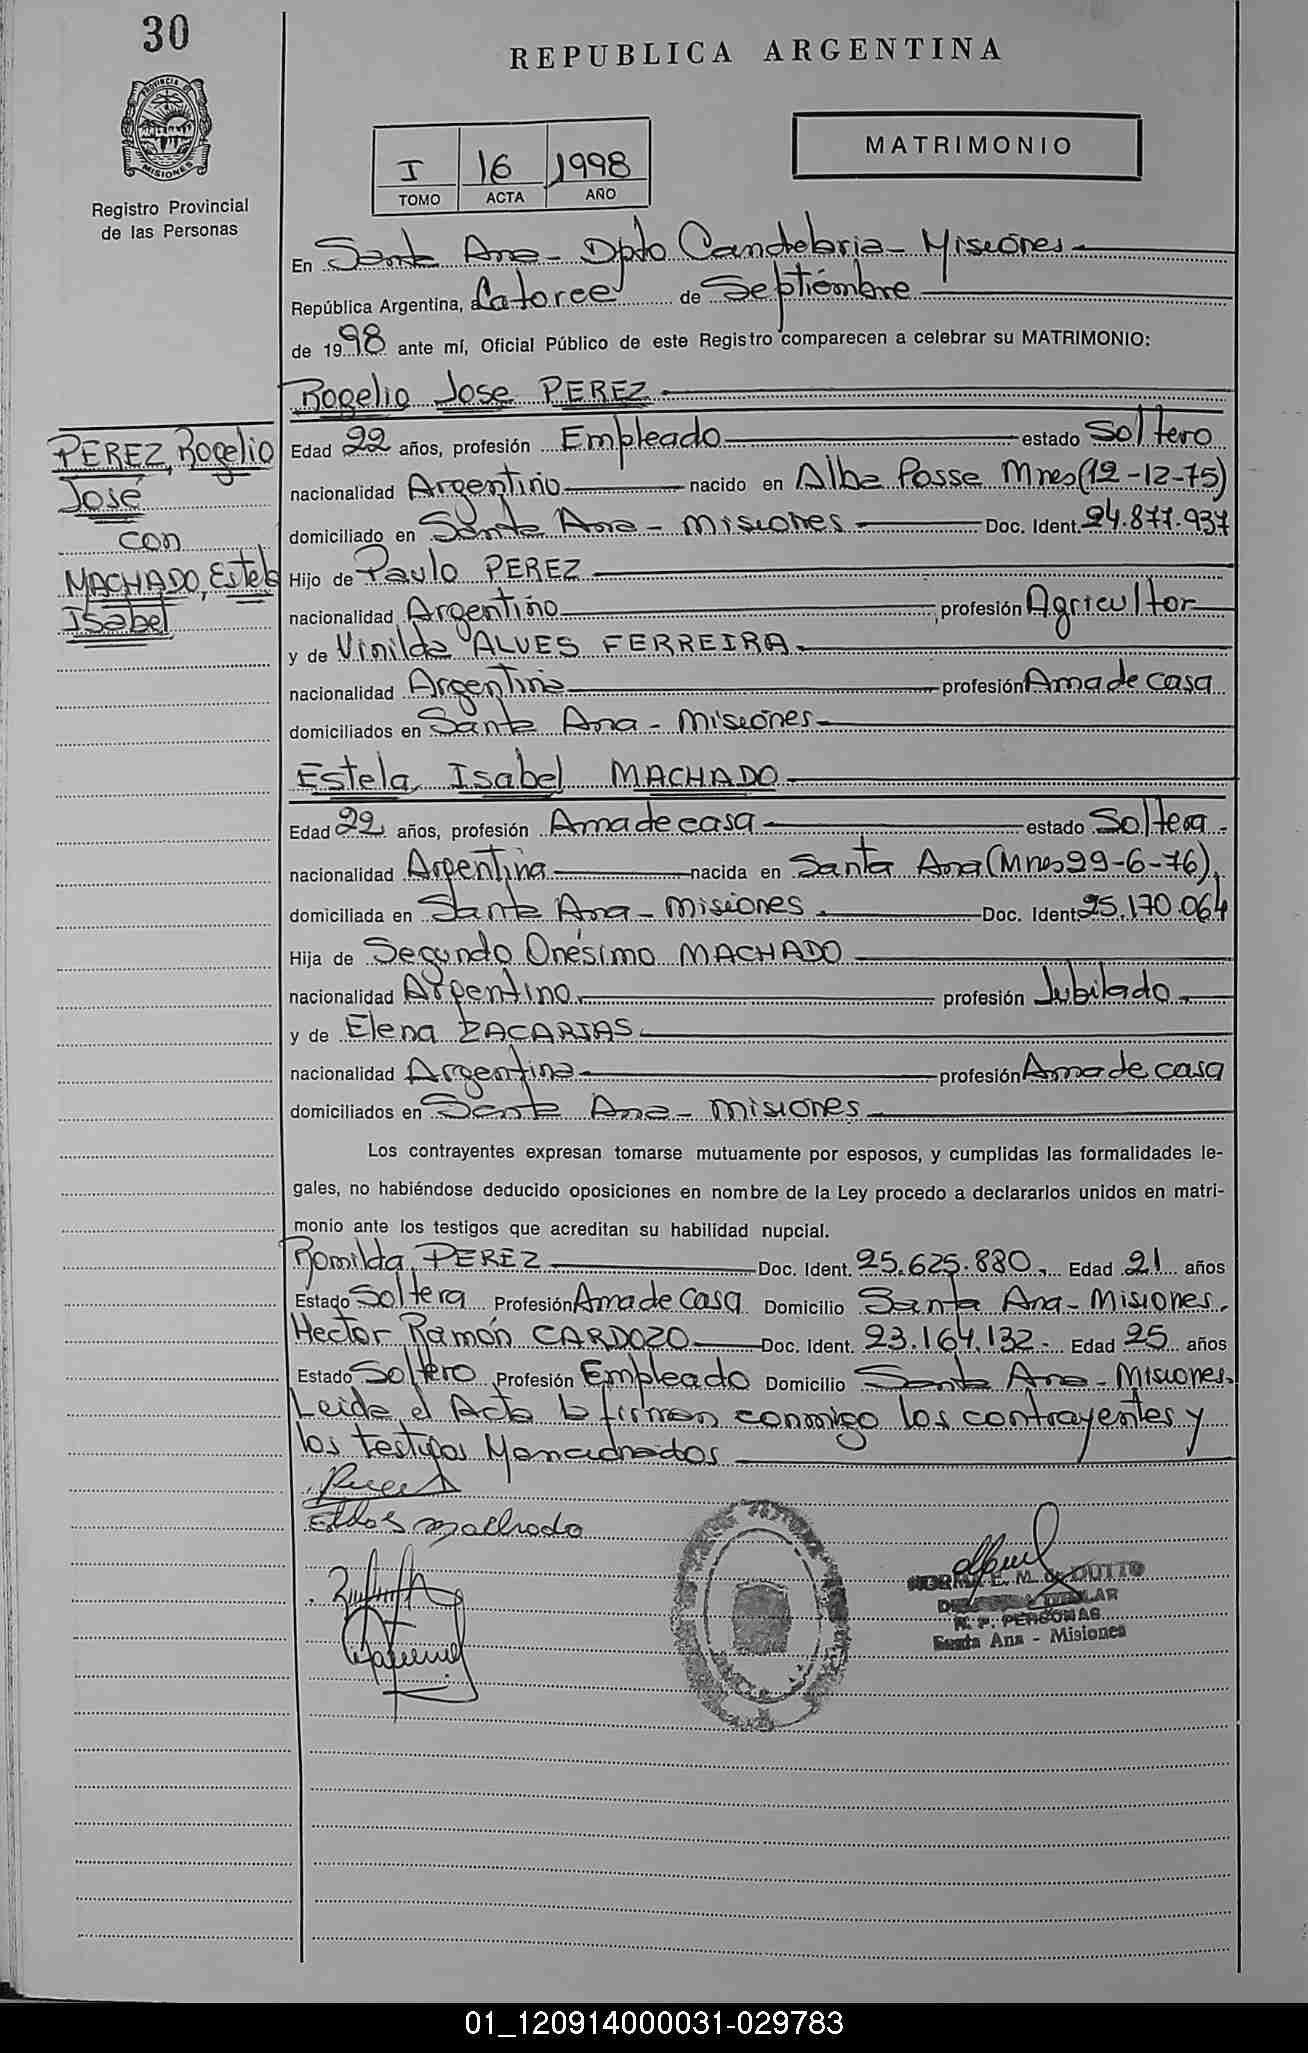 30
REPUBLICA ARGENTINA
PROVINCIA DE MISIONES
Registro Provincial
de las Personas
MATRIMONIO
I 16 1998
TOMO ACTA AÑO
En Santa Ana - Dpto Candelaria - Misiones
República Argentina, a Catorce de Septiembre
de 1998 ante mí, Oficial Público de este Registro comparecen a celebrar su MATRIMONIO:
Rogelio Jose PEREZ
PEREZ, Rogelio
José
con
MACHADO, Estela
Isabel
Edad 22 años, profesión Empleado estado Soltero
nacionalidad Argentino nacido en Alba Posse Mnes (12-12-75)
domiciliado en Santa Ana - Misiones Doc. Ident. 24.877.937
Hijo de Paulo PEREZ
nacionalidad Argentino profesión Agricultor
y de Vinilda ALVES FERREIRA.
nacionalidad Argentina profesión Ama de casa
domiciliados en Santa Ana - Misiones
Estela Isabel MACHADO
Edad 22 años, profesión Ama de casa estado Soltera
nacionalidad Argentina nacida en Santa Ana (Mnes 29-6-76),
domiciliada en Santa Ana - Misiones Doc. Ident 25.170.064
Hija de Segundo Onésimo MACHADO
nacionalidad Argentino. profesión Jubilado
y de Elena ZACARIAS.
nacionalidad Argentina profesión Ama de casa
domiciliados en Santa Ana - Misiones
Los contrayentes expresan tomarse mutuamente por esposos, y cumplidas las formalidades le-
gales, no habiéndose deducido oposiciones en nombre de la Ley procedo a declararlos unidos en matri-
monio ante los testigos que acreditan su habilidad nupcial.
Romilda PEREZ Doc. Ident. 25.625.880. Edad 21 años
Estado Soltera Profesión Ama de Casa Domicilio Santa Ana - Misiones.
Hector Ramón CARDOZO Doc. Ident. 23.164.132- Edad 25 años
Estado Soltero Profesión Empleado Domicilio Santa Ana - Misiones.
Leida el Acta la firman conmigo los contrayentes y
los testigos Mencionados
Machado
NORMA E. M. de DUTTO
DELEGADA TITULAR
R. P. PERSONAS
Santa Ana - Misiones
01_120914000031-029783